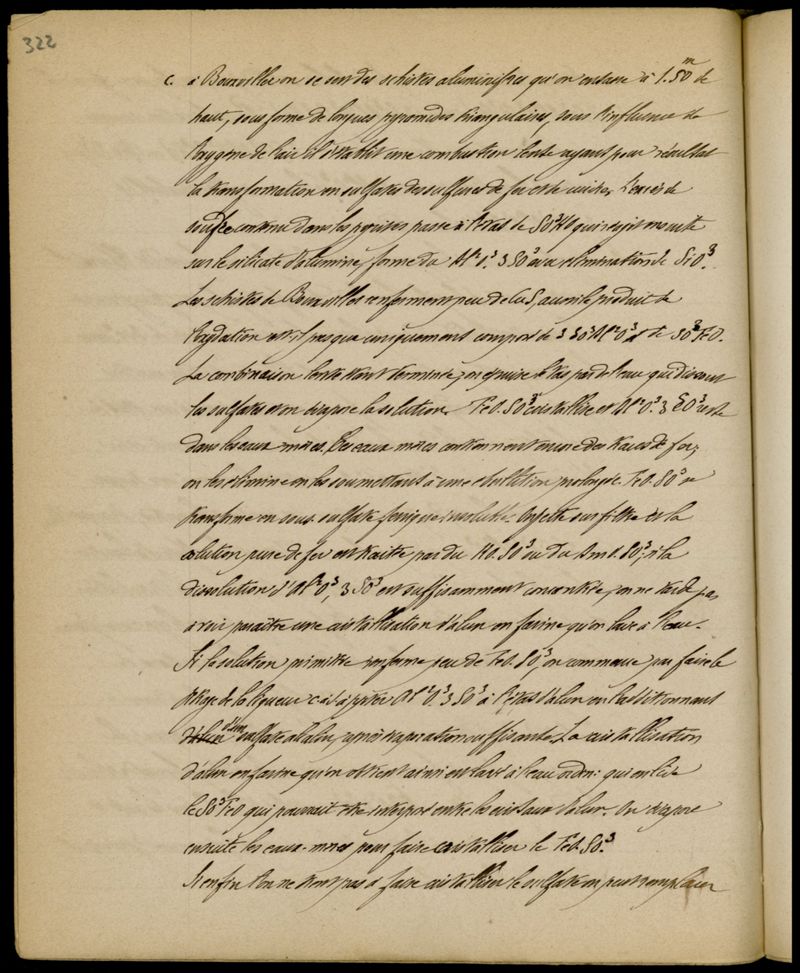 322
c. à Bouxviller on se sert des schistes aluminifères qu'on entasse à 1.50m de
haut, sous forme de longues pyramides triangulaires, sous l'influence de
l'oxygène de l'air il s'établit une combustion lente ayant pour résultat
la transformation en sulfates des sulfures de fer et de cuivre. L'excès de
soufre contenu dans les pyrites passe à l'état de SO³HO qui réagit ensuite
sur le silicate d'alumine, forme du Al²O³.3SO³ avec élimination de SiO³.
Les schistes de Bouxviller renferment peu de CuS, aussi le produit de
l'oxydation est-il presque uniquement composé de 3SO³Al²O³ & de SO³FeO.
La combinaison lente étant terminée, on épuise le tas par de l'eau qui dissout
les sulfates et on évapore la solution. FeO.SO³ cristallise et Al²O³.3SO³ reste
dans les eaux mères. Ces eaux mères contiennent encore des traces de fer;
on les élimine en les soumettant à une ébullition prolongée. FeO.SO³ se
transforme en sous-sulfate ferrique insoluble. On jette sur filtre et la
solution pure de fer est traitée par du KO.SO³ ou du AmO.SO³; si la
dissolution d'Al²O³,3SO³ est suffisamment concentrée, on ne tarde pas
à voir paraître une cristallisation d'alun en farine qu'on lave à l'eau.
Si la solution primitive renferme peu de FeO.SO³, on commence par faire le
brevetage de la liqueur c.à.d. à porter Al²O³.3SO³ à l'état d'alun en l'additionnant
d'un sulfate alcalin, après évaporation suffisante. La cristallisation
d'alun en farine qu'on obtient ainsi est lavée à l'eau ordin: qui enlève
le SO³FeO qui pourrait être interposé entre les cristaux d'alun. On évapore
ensuite les eaux-mères pour faire cristalliser le FeO.SO³.
Si enfin l'on ne tient pas à faire cristalliser le sulfate on peut remplacer